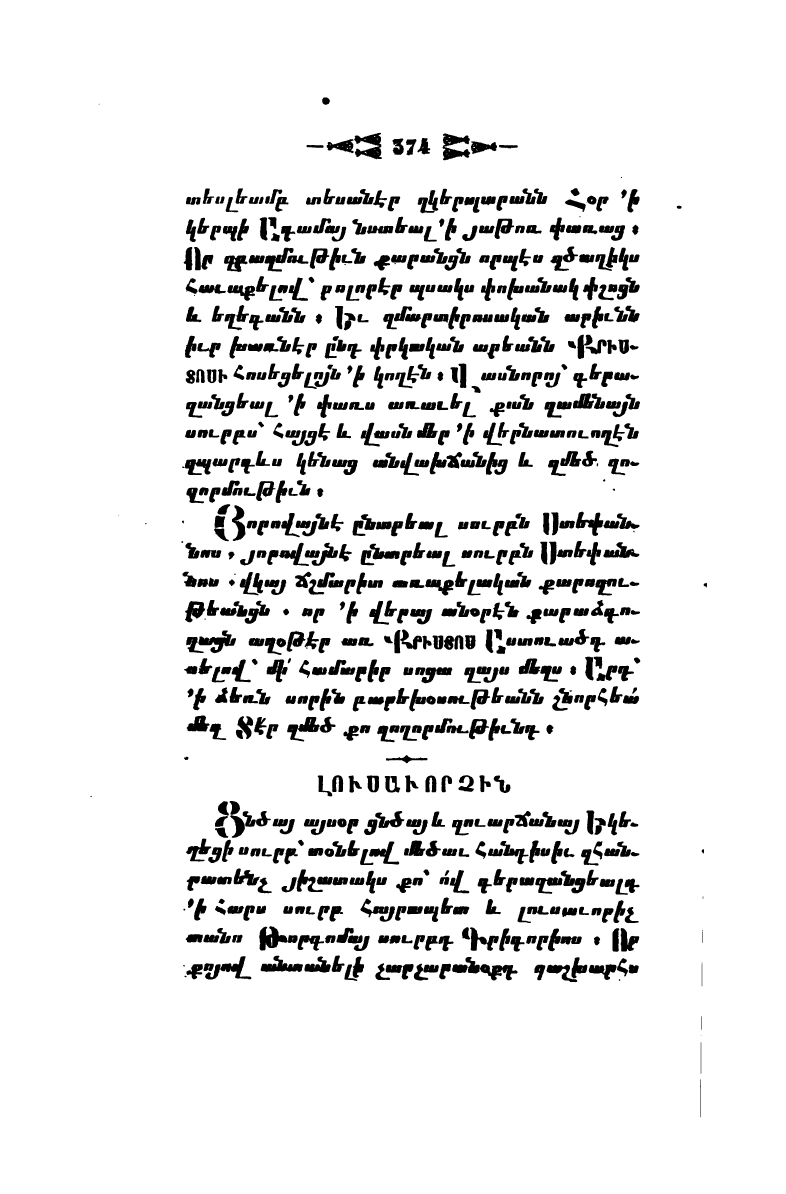 374
տեսլեամբ տեսանէր զկերպարանն Հօր ՚ի
կերպի Ադամայ նստեալ ՚ի յաթոռ փառաց ։
Որ զբազմութիւն քարանցն որպէս զծաղիկս
հաւաքելով՝ բոլորէր պսակս փոխանակ փշոցն
և եղեգանն ։ Եւ զմարտիրոսական արիւնն
իւր խառնէր ընդ փրկական արեանն ՔՐԻՍ-
ՏՈՍԻ հոսեցելոյն ՚ի կողէն ։ Վասնորոյ՝ գերա-
զանցեալ ՚ի փառս առաւել՝ քան զամենայն
սուրբս՝ հայցէ և վասն մեր ՚ի վերնատուողէն
զպարգևս կենաց անվախճանից և զմեծ զո-
զորմութիւն ։
Յորովայնէ ընտրեալ սուրբն Ստեփան-
նոս , յորովայնէ ընտրեալ սուրբն Ստեփան-
նոս , վկայ ճշմարիտ առաքելական քարոզու-
թեանցն , որ ՚ի վերայ անօրէն քարաձգո-
ղացն աղօթէր առ ՔՐԻՍՏՈՍ Աստուածդ ա-
սելով՝ մի՛ համարիր սոցա զայս մեղս ։ Արդ՝
՚ի ձեռն սորին բարեխօսութեանն շնորհեա՛
մեզ Տէր զմեծ քո զողորմութիւնդ ։
ԼՈՒՍԱՒՈՐՉԻՆ
Ցնծայ այսօր ցնծայ և զուարճանայ Եկե-
ղեցի սուրբ՝ տօնելով մեծաւ հանդիսիւ զհան-
րատենչ յիշատակս քո՝ ո՛վ գերազանցեալդ
՚ի հարս սուրբ Հայրապետ և լուսաւորիչ
տանո Թորգոմայ սուրբդ Գրիգորիոս ։ Որ
քոյով անտանելի չարչարանօքդ զաշխարհս